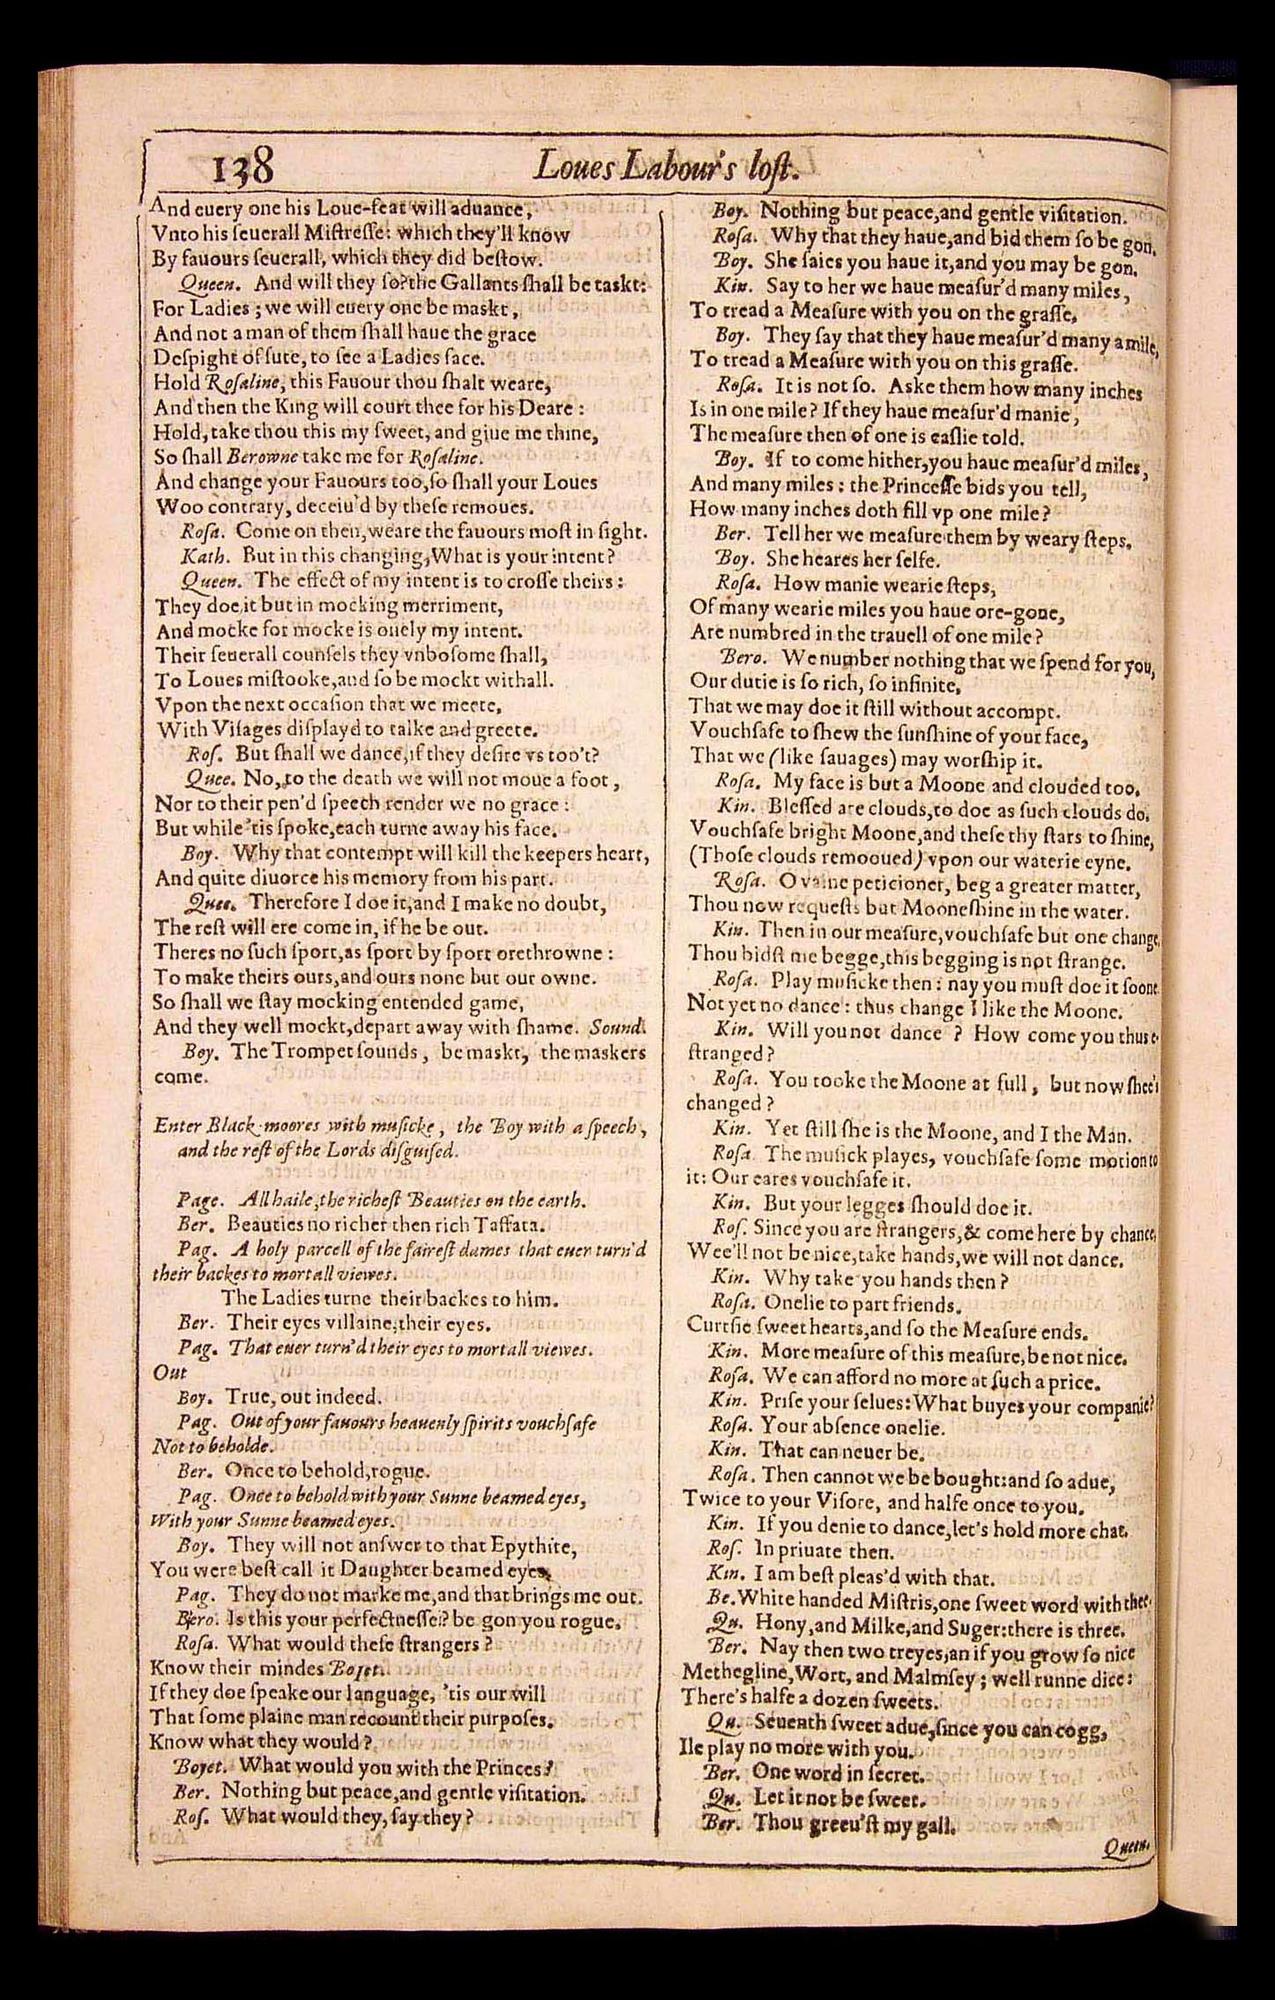 138
Loues Labour's lost.
And euery one his Loue-feat will aduance,
Vnto his seuerall Mistresse: which they'll know
By fauours seuerall, which they did bestow.
Queen. And will they so? the Gallants shall be taskt:
For Ladies; we will euery one be maskt,
And not a man of them shall haue the grace
Despight of sute, to see a Ladies face.
Hold Rosaline, this Fauour thou shalt weare,
And then the King will court thee for his Deare:
Hold, take thou this my sweet, and giue me thine,
So shall Berowne take me for Rosaline.
And change your Fauours too, so shall your Loues
Woo contrary, deceiu'd by these remoues.
Rosa. Come on then, weare the fauours most in sight.
Kath. But in this changing, What is your intent?
Queen. The effect of my intent is to crosse theirs:
They doe it but in mocking merriment,
And mocke for mocke is onely my intent.
Their seuerall counsels they vnbosome shall,
To Loues mistooke, and so be mockt withall.
Vpon the next occasion that we meete,
With Visages displayd to talke and greete.
Ros. But shall we dance, if they desire vs too't?
Quee. No, to the death we will not moue a foot,
Nor to their pen'd speech render we no grace:
But while 'tis spoke, each turne away his face.
Boy. Why that contempt will kill the keepers heart,
And quite diuorce his memory from his part.
Quee. Therefore I doe it, and I make no doubt,
The rest will ere come in, if he be out.
Theres no such sport, as sport by sport orethrowne:
To make theirs ours, and ours none but our owne.
So shall we stay mocking entended game,
And they well mockt, depart away with shame. Sound.
Boy. The Trompet sounds, be maskt, the maskers
come.
Enter Black moores with musicke, the Boy with a speech,
and the rest of the Lords disguised.
Page. All haile, the richest Beauties on the earth.
Ber. Beauties no richer then rich Taffata.
Pag. A holy parcell of the fairest dames that euer turn'd
their backes to mortall viewes.
The Ladies turne their backes to him.
Ber. Their eyes villaine, their eyes.
Pag. That euer turn'd their eyes to mortall viewes.
Out
Boy. True, out indeed.
Pag. Out of your fauours heauenly spirits vouchsafe
Not to beholde.
Ber. Once to behold, rogue.
Pag. Once to behold with your Sunne beamed eyes,
With your Sunne beamed eyes.
Boy. They will not answer to that Epythite,
You were best call it Daughter beamed eyes.
Pag. They do not marke me, and that brings me out.
Bero. Is this your perfectnesse? be gon you rogue.
Rosa. What would these strangers?
Know their mindes Boyet.
If they doe speake our language, 'tis our will
That some plaine man recount their purposes.
Know what they would?
Boyet. What would you with the Princes?
Ber. Nothing but peace, and gentle visitation.
Ros. What would they, say they?
Boy. Nothing but peace, and gentle visitation.
Rosa. Why that they haue, and bid them so be gon.
Boy. She saies you haue it, and you may be gon.
Kin. Say to her we haue measur'd many miles,
To tread a Measure with you on the grasse.
Boy. They say that they haue measur'd many a mile,
To tread a Measure with you on this grasse.
Rosa. It is not so. Aske them how many inches
Is in one mile? If they haue measur'd manie,
The measure then of one is easlie told.
Boy. If to come hither, you haue measur'd miles,
And many miles: the Princesse bids you tell,
How many inches doth fill vp one mile?
Ber. Tell her we measure them by weary steps.
Boy. She heares her selfe.
Rosa. How manie wearie steps,
Of many wearie miles you haue ore-gone,
Are numbred in the trauell of one mile?
Bero. We number nothing that we spend for you,
Our dutie is so rich, so infinite,
That we may doe it still without accompt.
Vouchsafe to shew the sunshine of your face,
That we (like sauages) may worship it.
Rosa. My face is but a Moone and clouded too.
Kin. Blessed are clouds, to doe as such clouds do.
Vouchsafe bright Moone, and these thy stars to shine,
(Those clouds remooued) vpon our waterie eyne.
Rosa. O vaine peticioner, beg a greater matter,
Thou now requests but Mooneshine in the water.
Kin. Then in our measure, vouchsafe but one change,
Thou bidst me begge, this begging is not strange.
Rosa. Play musicke then: nay you must doe it soone.
Not yet no dance: thus change I like the Moone.
Kin. Will you not dance? How come you thus e-
stranged?
Rosa. You tooke the Moone at full, but now shee's
changed?
Kin. Yet still she is the Moone, and I the Man.
Rosa. The musick playes, vouchsafe some motion to
it: Our eares vouchsafe it.
Kin. But your legges should doe it.
Ros. Since you are strangers, & come here by chance,
Wee'll not be nice, take hands, we will not dance.
Kin. Why take you hands then?
Rosa. Onelie to part friends.
Curtsie sweet hearts, and so the Measure ends.
Kin. More measure of this measure, be not nice.
Rosa. We can afford no more at such a price.
Kin. Prise your selues: What buyes your companie?
Rosa. Your absence onelie.
Kin. That can neuer be.
Rosa. Then cannot we be bought: and so adue,
Twice to your Visore, and halfe once to you.
Kin. If you denie to dance, let's hold more chat.
Ros. In priuate then.
Kin. I am best pleas'd with that.
Be. White handed Mistris, one sweet word with thee.
Qu. Hony, and Milke, and Suger: there is three.
Ber. Nay then two treyes, an if you grow so nice
Methegline, Wort, and Malmsey; well runne dice:
There's halfe a dozen sweets.
Qu. Seuenth sweet adue, since you can cogg,
Ile play no more with you.
Ber. One word in secret.
Qu. Let it not be sweet.
Ber. Thou greeu'st my gall.
Queen.